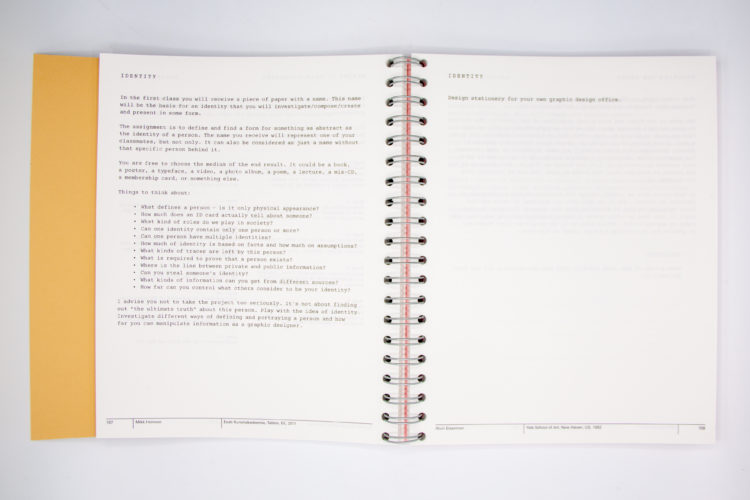 IDENTITY
In the first class you will receive a piece of paper with a name. This name
will be the basis for an identity that you will investigate/compose/create
and present in some form.
The assignment is to define and find a form for something as abstract as
the identity of a person. The name you receive will represent one of your
classmates, but not only. It can also be considered as just a name without
that specific person behind it.
You are free to choose the medium of the end result. It could be a book,
a poster, a typeface, a video, a photo album, a poem, a lecture, a mix-CD,
a membership card, or something else.
Things to think about:
• What defines a person – is it only physical appearance?
• How much does an ID card actually tell about someone?
• What kind of roles do we play in society?
• Can one identity contain only one person or more?
• Can one person have multiple identities?
• How much of identity is based on facts and how much on assumptions?
• What kinds of traces are left by this person?
• What is required to prove that a person exists?
• Where is the line between private and public information?
• Can you steal someone's identity?
• What kinds of information can you get from different sources?
• How far can you control what others consider to be your identity?
I advise you not to take the project too seriously. It's not about finding
out "the ultimate truth" about this person. Play with the idea of identity.
Investigate different ways of defining and portraying a person and how
far you can manipulate information as a graphic designer.
167 Eesti Kunstiakadeemia, Tallinn, EE, 2011
IDENTITY
Design stationery for your own graphic design office.
Yale School of Art, New Haven, US, 168